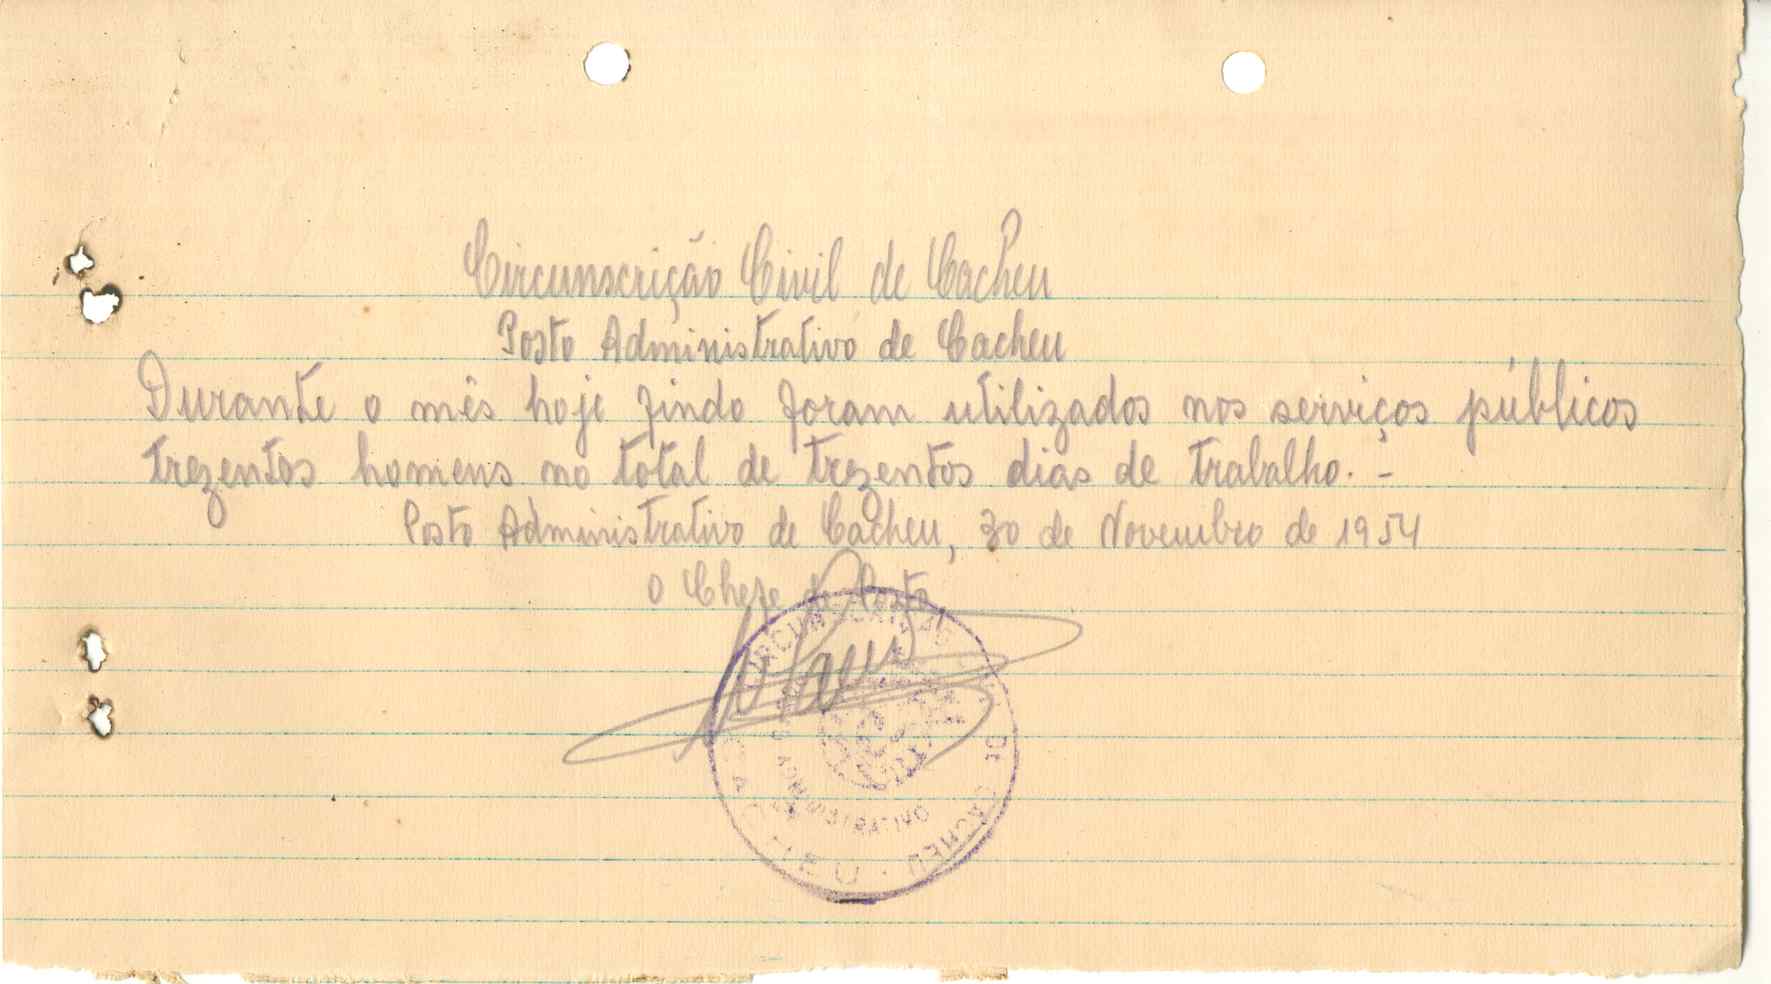 Circunscrição Civil de Cacheu
Posto Administrativo de Cacheu
Durante o mês hoje findo foram utilizados nos serviços públicos
trezentos homens no total de trezentos dias de trabalho. -
Posto Administrativo de Cacheu, 30 de Novembro de 1954
O Chefe de Posto
DE CACHEU
ADMINISTRATIVO
CACHEU